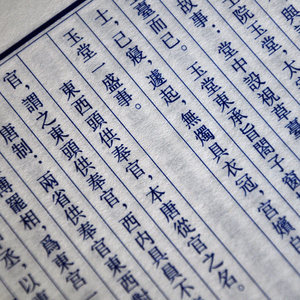 士院玉堂，太
故事：堂中設視草臺
臺而已。玉堂東承旨閤子窗
士，已寢，遽起，無燭具衣冠，宮嬪
玉堂一盛事。
東西頭供奉官，本唐從官之名。
官，謂之東頭供奉官，西內具員不
唐制：兩省供奉官東西對
溥罷相，爲東宮一
丞，以